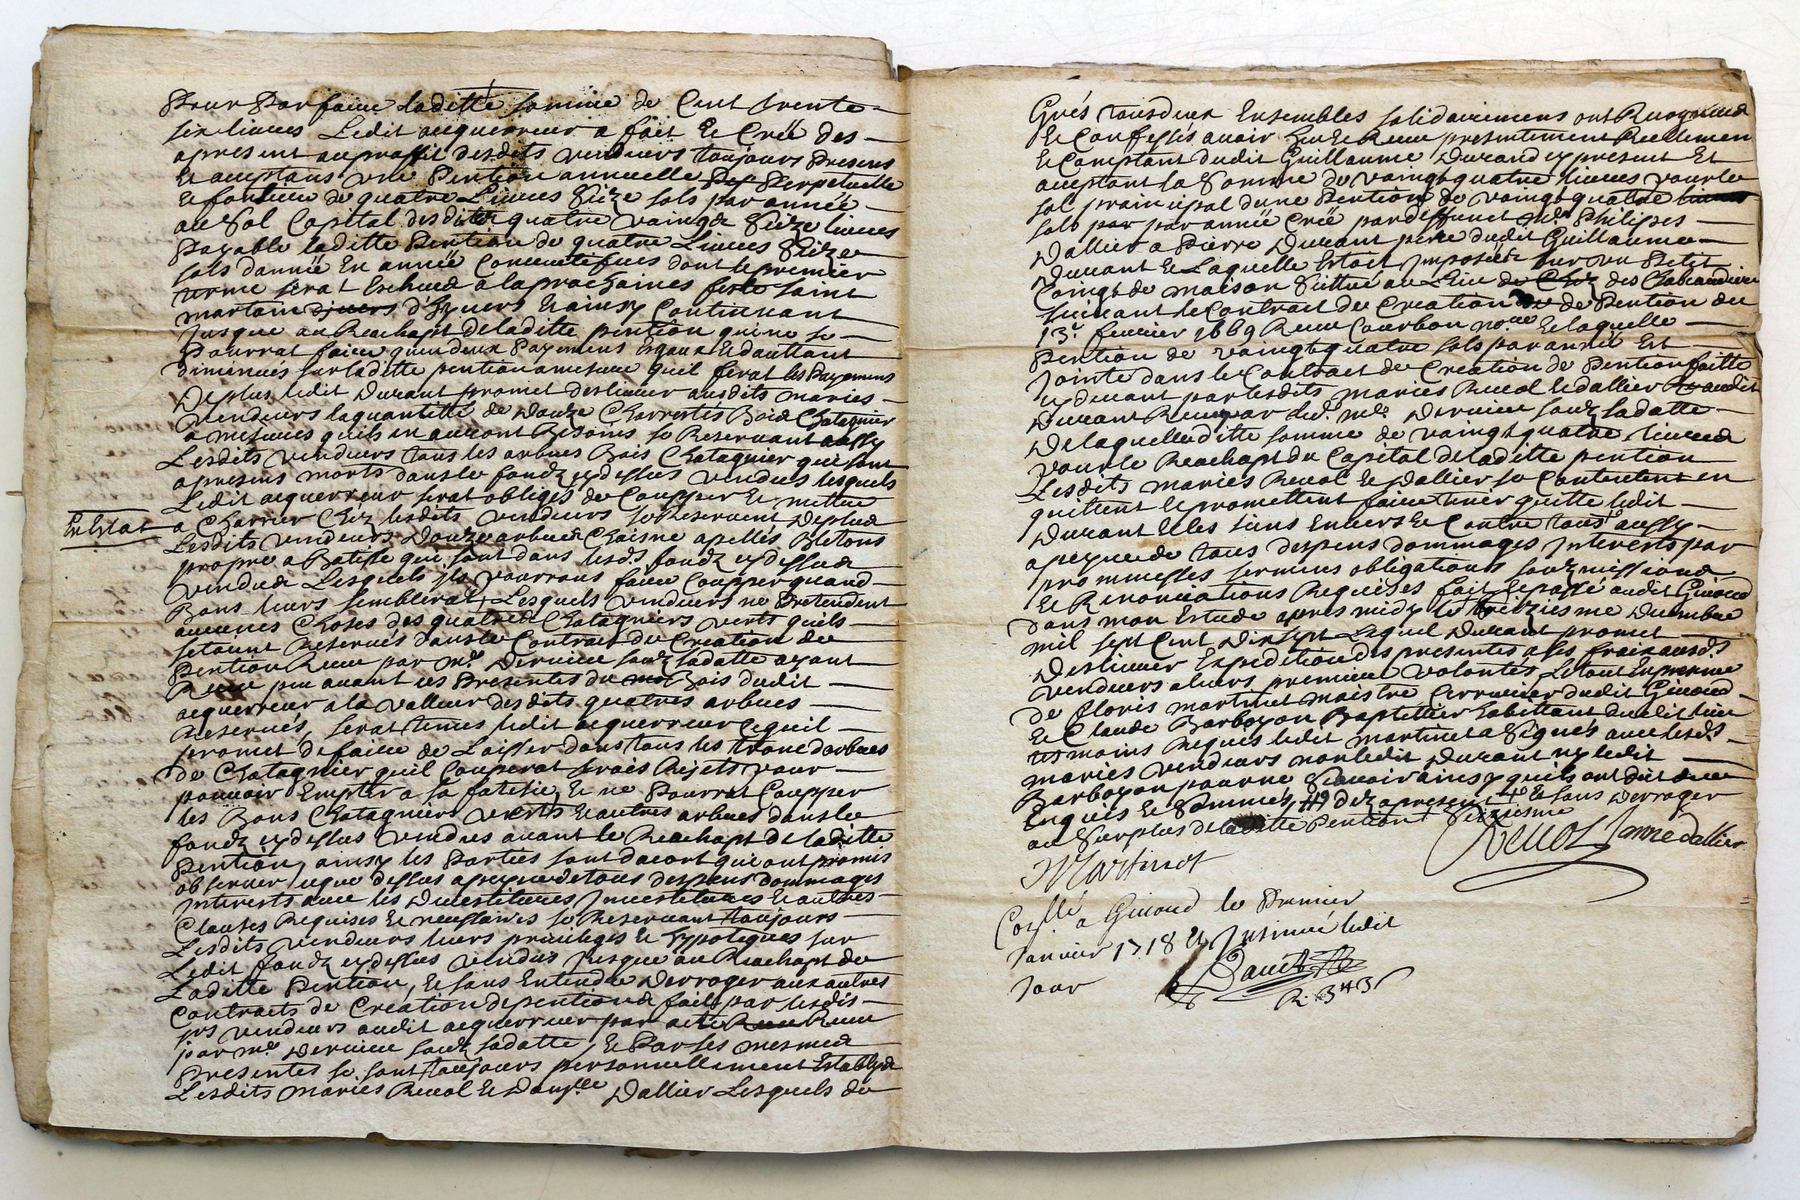 Pour Parfaire laditte somme de Cent trente
six livres Ledit acquerreur a fait Et Créé des
apresent auproffit desdits vendeurs toujours Presens
Et acceptans une Pention annuelle Perpetuelle
Et fonciere de quatre Livres Seize sols par année
au Sol Capital desdittes quatre vaingt Seize livres
Payable laditte Pention de quatre Livres Seize
sols dannéé En annéé Consecutifves dont le premier
terme serat Escheud a la prochaines feste saint
martain d'hyvers Et ainsy Continuant
Jusque au Reachapt de laditte pention qui ne se
Pourrat faire quen deux Payemens Esgaux Et dauttant
diminués sur laditte pention a mesure quil ferat les Payemens
De plus ledit Durant promet deslivrer ausdits mariés
vendeurs la quantitté de Douze Charrettés Bois Chatagnier
a mesures quils en auront Besoins se Reservant aussy
Lesdits vendeurs tous les arbres Bois Chatagnier qui sont
apresens morts dans les fondz cydessus vendues lesquels
Ledit acquerreur serat obligés de Coupper Et mettre
En Estat
a Charrier Chéz lesdits vendeurs se Reservent De plus
Lesdits vendeurs Douze arbres Chaisne apellés Bletons
propre a Batisse qui sont dans lesd. fondz cydessus
vendus Lesquels ils pourrons faire Coupper quand
Bons leurs semblerat, Lesquels vendeurs ne Pretendent
aucunes Choses des quattres Chatagniers verts quils
setoint Reservés dans le Contrat du Creation de
Pention Receu par me. Dervieu soubz sadatte ayant
Receu peu avant ces Presentes du Bois dudit
acquerreur a la valleur desdits quatres arbres
Reservés, serat tenus ledit acquerreur ce quil
promet de faire de Laisser dans tous les tronc darbres
de Chatagnier quil Couperat trois Rejets pour
pouvoir Empter a sa fatisie, Et ne Pourrat Coupper
les Bons Chatagniers verts Et autres arbres dans les
fondz cydessus vendus avant le Reachapt de laditte
Pention, ainsy les Parties sont dacort qui ont promis
observer ceque dessus a peyne de tous despens dommages
Interests avec les Devestitures Investitures Et autres
Clauses Requises Et necessaires se Reservant toujours
Lesdits vendeurs leurs privileges Et hypoteques sur
Ledit fondz cydessus vendus Jusque au Reachapt de
Laditte Pention, Et sans Entendre Derroger aux autres
Contracts de Creation de pentions faits par lesdis
vendeurs audit acquerreur par acte Receu
par me. Dervieu soubz sadatte, Et Par les mesmes
Presentes se sont toujours personnellement Establys
Lesdits mariés Reuol Et Damlle. Dallier Lesquels de
Grés tous deux Ensembles solidairemens ont Recognus
Et Confessés avoir Heu Et Receu presentement Reellemen
Et Comptant dudit Guillaume Durand cy present Et
acceptant la Somme de vaingt quatre livres pour le
sol principal dune Pention de vaingt quatre
sols par année Créé par deffunct Philipes
Dallier a Pierre Durant pere dudit Guillaume
Durant Et Laquelle Estoit Imposéé sur un Petit
Coingt de maison Sittué au Lieu des
suivant le Contrat de Creation de Pention du
13e. fevrier 1669 Receu Courbon nore. Et laquelle
Pention de vaingt quatre sols par annéé Est
Jointe dans le Contract de Creation de Pention faitte
cydevant par lesdits mariés Reuol Et dallier audit
Durant Receu par led. me. Dervieu soubz sadatte
De laquelle ditte somme de vaingt quatre livres
pour le Reachapt du Capital de laditte pention
Lesdits mariés Reuol Et Dallier se Contentent en
quittent Et promettent faire tenir quitte ledit
Durant Et les siens Envers Et Contre tous aussy
a peyne de tous despens dommages Interests par
prommesses sermens obligations soubzmissions
Et Renonciations Requises fait Et passé audit Givord
dans mon Estude apres midy le Decembre
mil sept Cent Dixsept Lequel Durant promet
Deslivrer Expedition des presentes a ses fraix ausds.
vendeurs a leurs premiere volontés Le tout En presence
de Floris martinot maistre dudit Givord
Et Claude Barboyon Battellier habittant dudit lieu
tesmoins Requis ledit martinot a Signés avec lesds.
mariés vendeurs non ledit Durant ny ledit
Barboyon pour ne Scavoir ainsy quils ont dit de ce
Enquis Et Sommés, dez apresent Et sans Derroger
au Surplus de laditte Pention
Reuol Janne dallier
Martinot
Conllé. a Givord le Premier
Janvier 1718 Et Insinué ledit
Jour